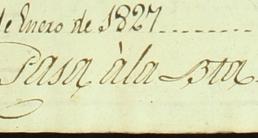 de Enero de 1827.........
Pasa à la Bta